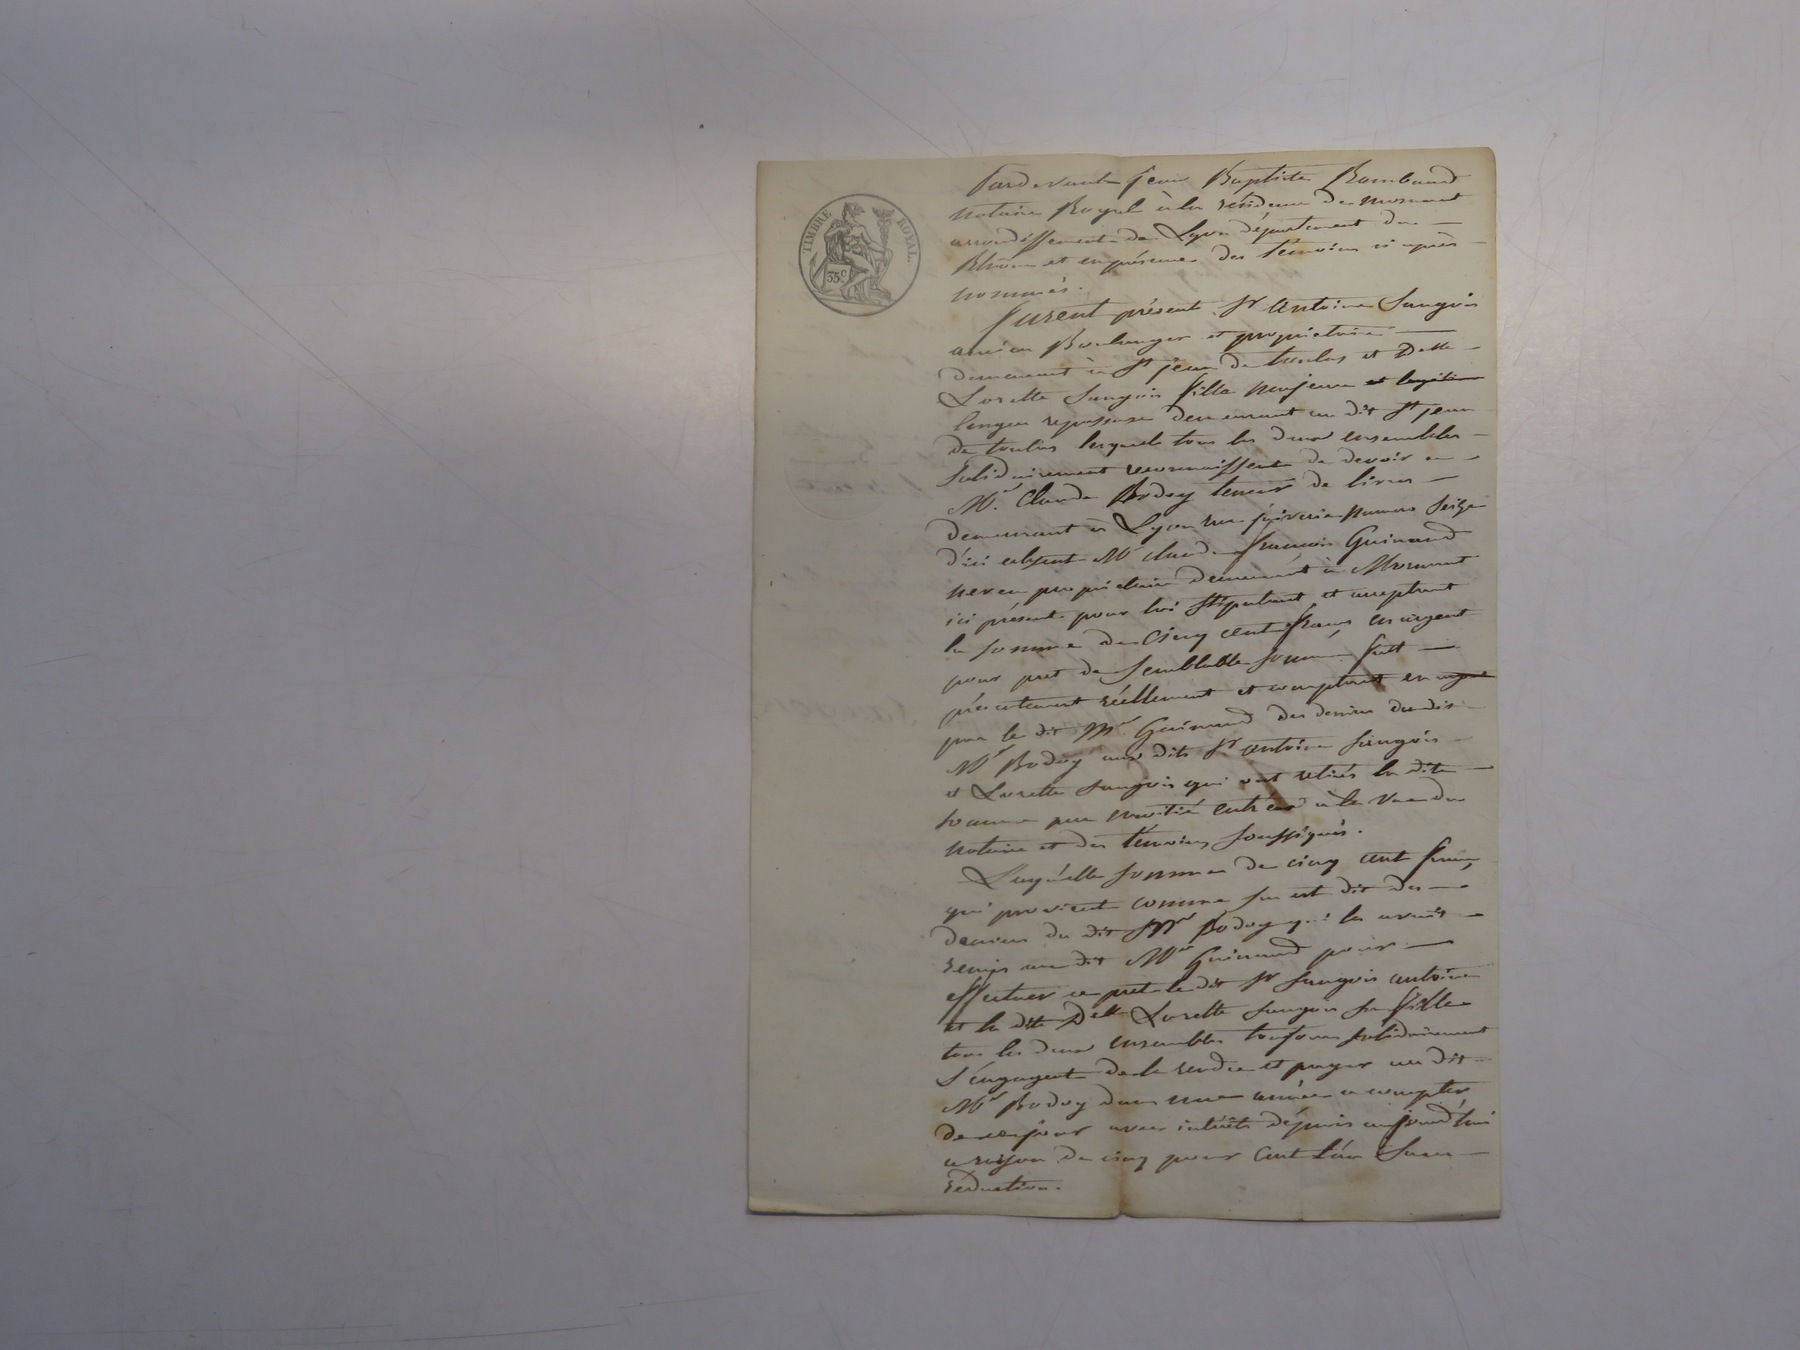 TIMBRE ROYAL
35 c
Pardevant Jean Baptiste Rambaud
notaire Royal à la résidence de mornant
arrondissement de Lyon département du
Rhône et en présence des témoins ci après
nommés.
furent présent Sr Antoine Sangoin
ancien Boulanger et propriétaire
demeurant à St jean de toulas et Delle
Lorette Sangoin fille majeure
repasseuse demeurant au dit St jean
de toulas lesquels tous les deux ensembles
Solidairement reconnaissent de devoir a
Mr. Claude Bodoy teneur de livres
demeurant à Lyon rue juiverie numero Seize
d'ici absent Mr claude françois Guinand
neveu propriétaire demeurant à Mornant
ici présent pour lui stipulant et acceptant
la somme de cinq cent francs, en argent
pour pret de Semblable somme fait
présentement réellement et comptant
par le dit Mr Guinand des deniers du dit
Mr Bodoy aux dits Sr antoine Sangoin
et Lorette Sangoin qui ont retirés la dite
somme par moitié entr'eux à la vue du
notaire et des témoins soussignés.
Laquelle somme de cinq cent francs,
qui provient comme sus est dit des
deniers du dit Mr Bodoy qui les avait
remis au dit Mr Guinand pour
effectuer ce pret le dit Sr Sangoin antoine
et la dite Delle Lorette Sangoin sa fille
tous les deux ensembles toujours solidairement
S'engagent de le rendre et payer au dit
Mr Bodoy dans une année a compter
de ce jour avec intérêts dépuis aujourd'hui
a raison de cinq pour cent l'an Sans
réduction.